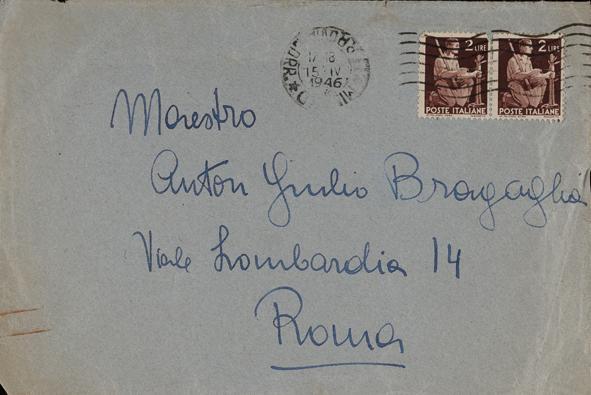 17-18
15 · IV
1946
2 LIRE 2 LIRE
POSTE ITALIANE POSTE ITALIANE
Maestro
Anton Giulio Bragaglia
Viale Lombardia 14
Roma